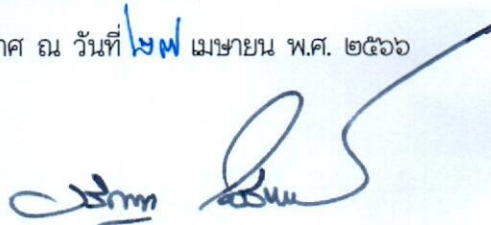 าศ ณ วันที่ ๒๗ เมษายน พ.ศ. ๒๕๖๖